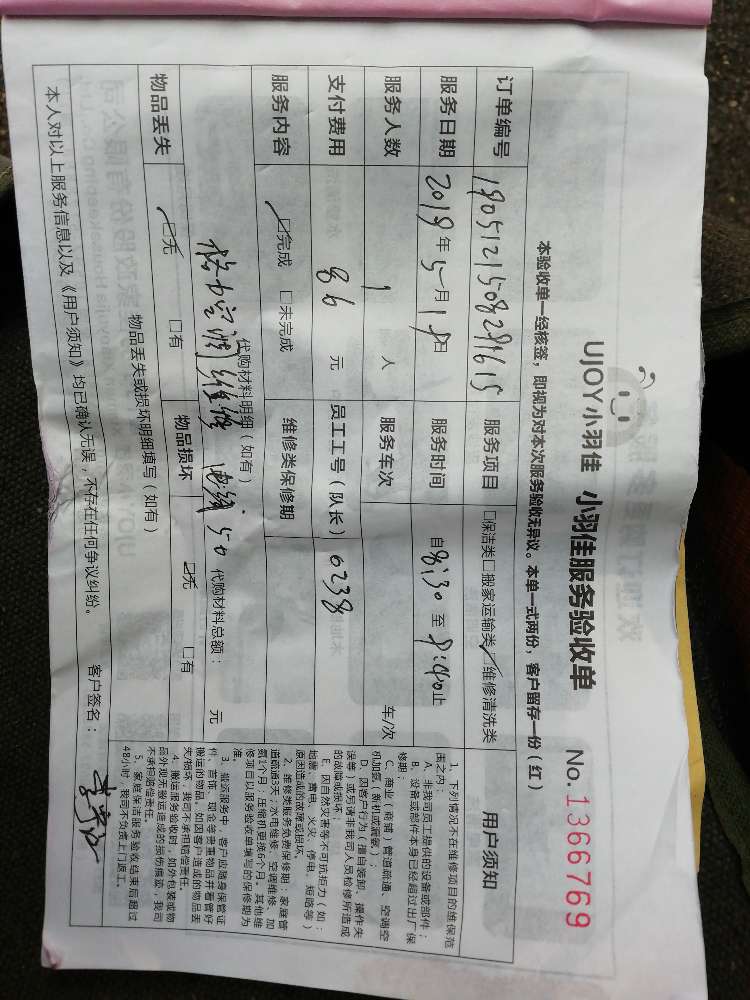 UJOY小羽佳 小羽佳服务验收单
No.1366769
本验收单一经核签，即视为对本次服务验收无异议。本单一式两份，客户留存一份（红）
订单编号 1805121508291615 服务项目 □保洁类□搬家运输类☑维修清洗类
服务日期 2018年5月18日 服务时间 自8:30至9:40止
服务人数 1 人 服务车次 车/次
支付费用 86 元 员工工号（队长） 0238
服务内容 ☑完成 □未完成 维修类保修期
代购材料明细（如有）
格力空调维修 电线50 代购材料总额： 元
物品丢失 ☑无 □有 物品损坏 ☑无 □有
物品丢失或损坏明细填写（如有）
本人对以上服务信息以及《用户须知》均已确认无误，不存在任何争议纠纷。 客户签名：
用户须知
1、下列情况不在维修项目的维保范
围之内：
A、非我司员工提供的设备或部件；
B、设备或部件本身已经超过出厂保
修期；
C、商业（商铺）管道疏通、空调空
机加氨（新机或漏氨）；
D、因客户行为（擅自装卸、操作失
误等）或另请非我司人员检修所造成
的故障或损坏；
E、因自然灾害等不可抗拒力（如：
地震、雷电、火灾、停电、短路等）
原因造成的故障或损坏。
2、维修类服务免费保修期：家庭管
道疏通3天；水电维修、空调维修、加
氨1个月；压缩机更换6个月。其他维
修项目以服务验收单填写的保修期为
准。
3、搬运服务中，客户应随身保管证
件、首饰、现金等贵重物品并看管好
搬运的物品。如因客户造成的物品丢
失/损坏，我司不承担赔偿责任。
4、搬运服务验收时，如外包装或物
品外观无搬运造成的损伤痕迹，我司
不承担赔偿责任。
5、家庭保洁服务验收结束后超过
48小时，我司不负责上门返工。